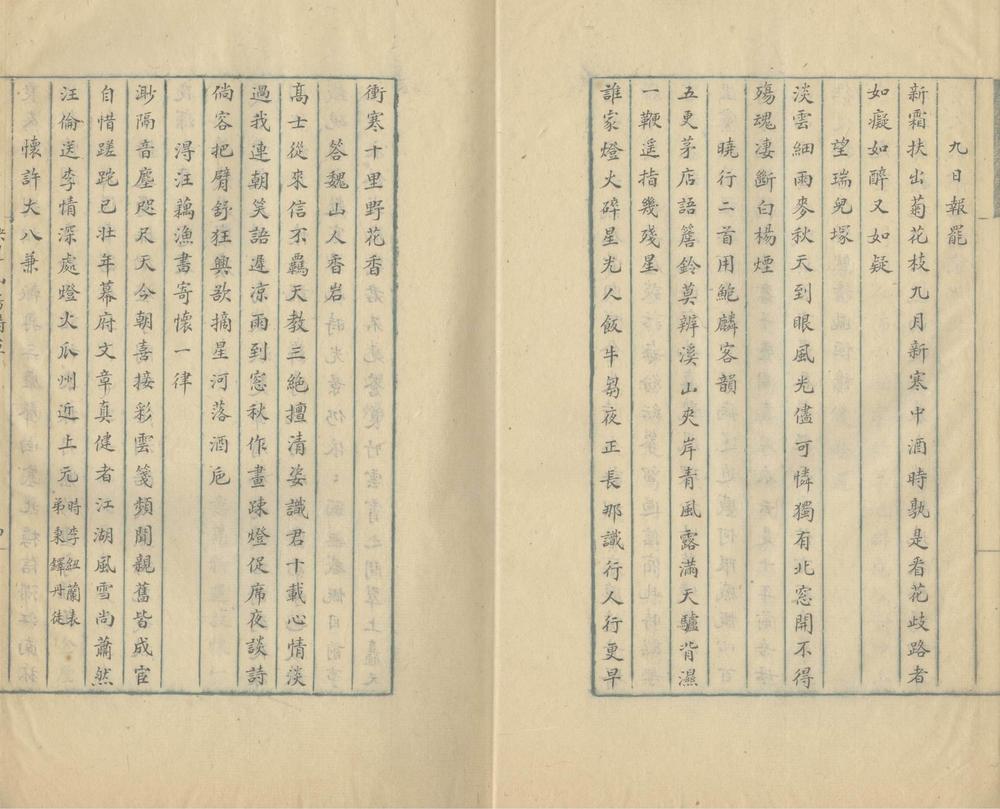 九日報罷
新霜扶出菊花枝九月新寒中酒時孰是看花歧路者
如癡如醉又如疑
望瑞兒塚
淡雲細雨麥秋天到眼風光儘可憐獨有北窓開不得
殤魂凄斷白楊煙
曉行二首用鮑麟客韻
五更茅店語簷鈴莫辨溪山夾岸青風露滿天驢背濕
一鞭遥指幾殘星
誰家燈火碎星光人飯牛芻夜正長那識行人行更早
衝寒十里野花香
答魏山人香岩
高士從來信不羈天教三絶擅清姿識君十載心情淡
過我連朝笑語遲凉雨到窓秋作畫踈燈促席夜談詩
倘容把臂舒狂興歌摘星河落酒巵
淂汪藕漁書寄懷一律
渺隔音塵咫尺天今朝喜接彩雲箋頻聞親舊皆成宦
自惜蹉跎已壯年幕府文章真健者江湖風雪尚蕭然
汪倫送李情深處燈火瓜州近上元時李紐蘭表弟秉鐸丹徒
懷許大八兼